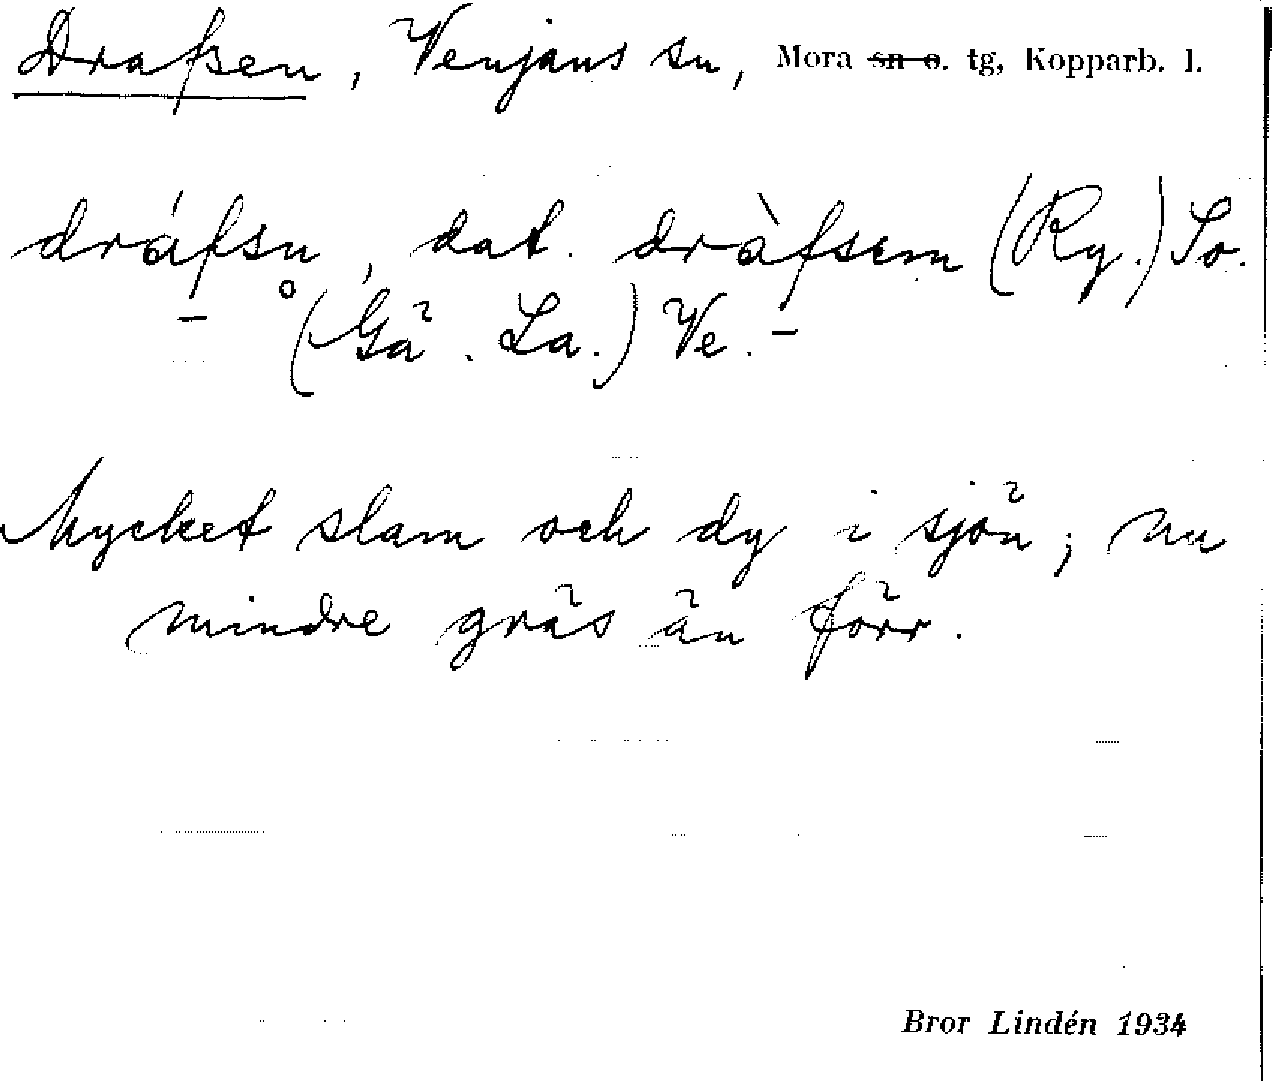 Drafsen, Venjans sn, Mora sn o. tg, Kopparb. l.
dráfsn̥, dat. dràfsem (Ry.) So.
(Gä. La.) Ve.
Mycket slam och dy i sjön; nu
mindre gräs än förr.
Bror Lindén 1934